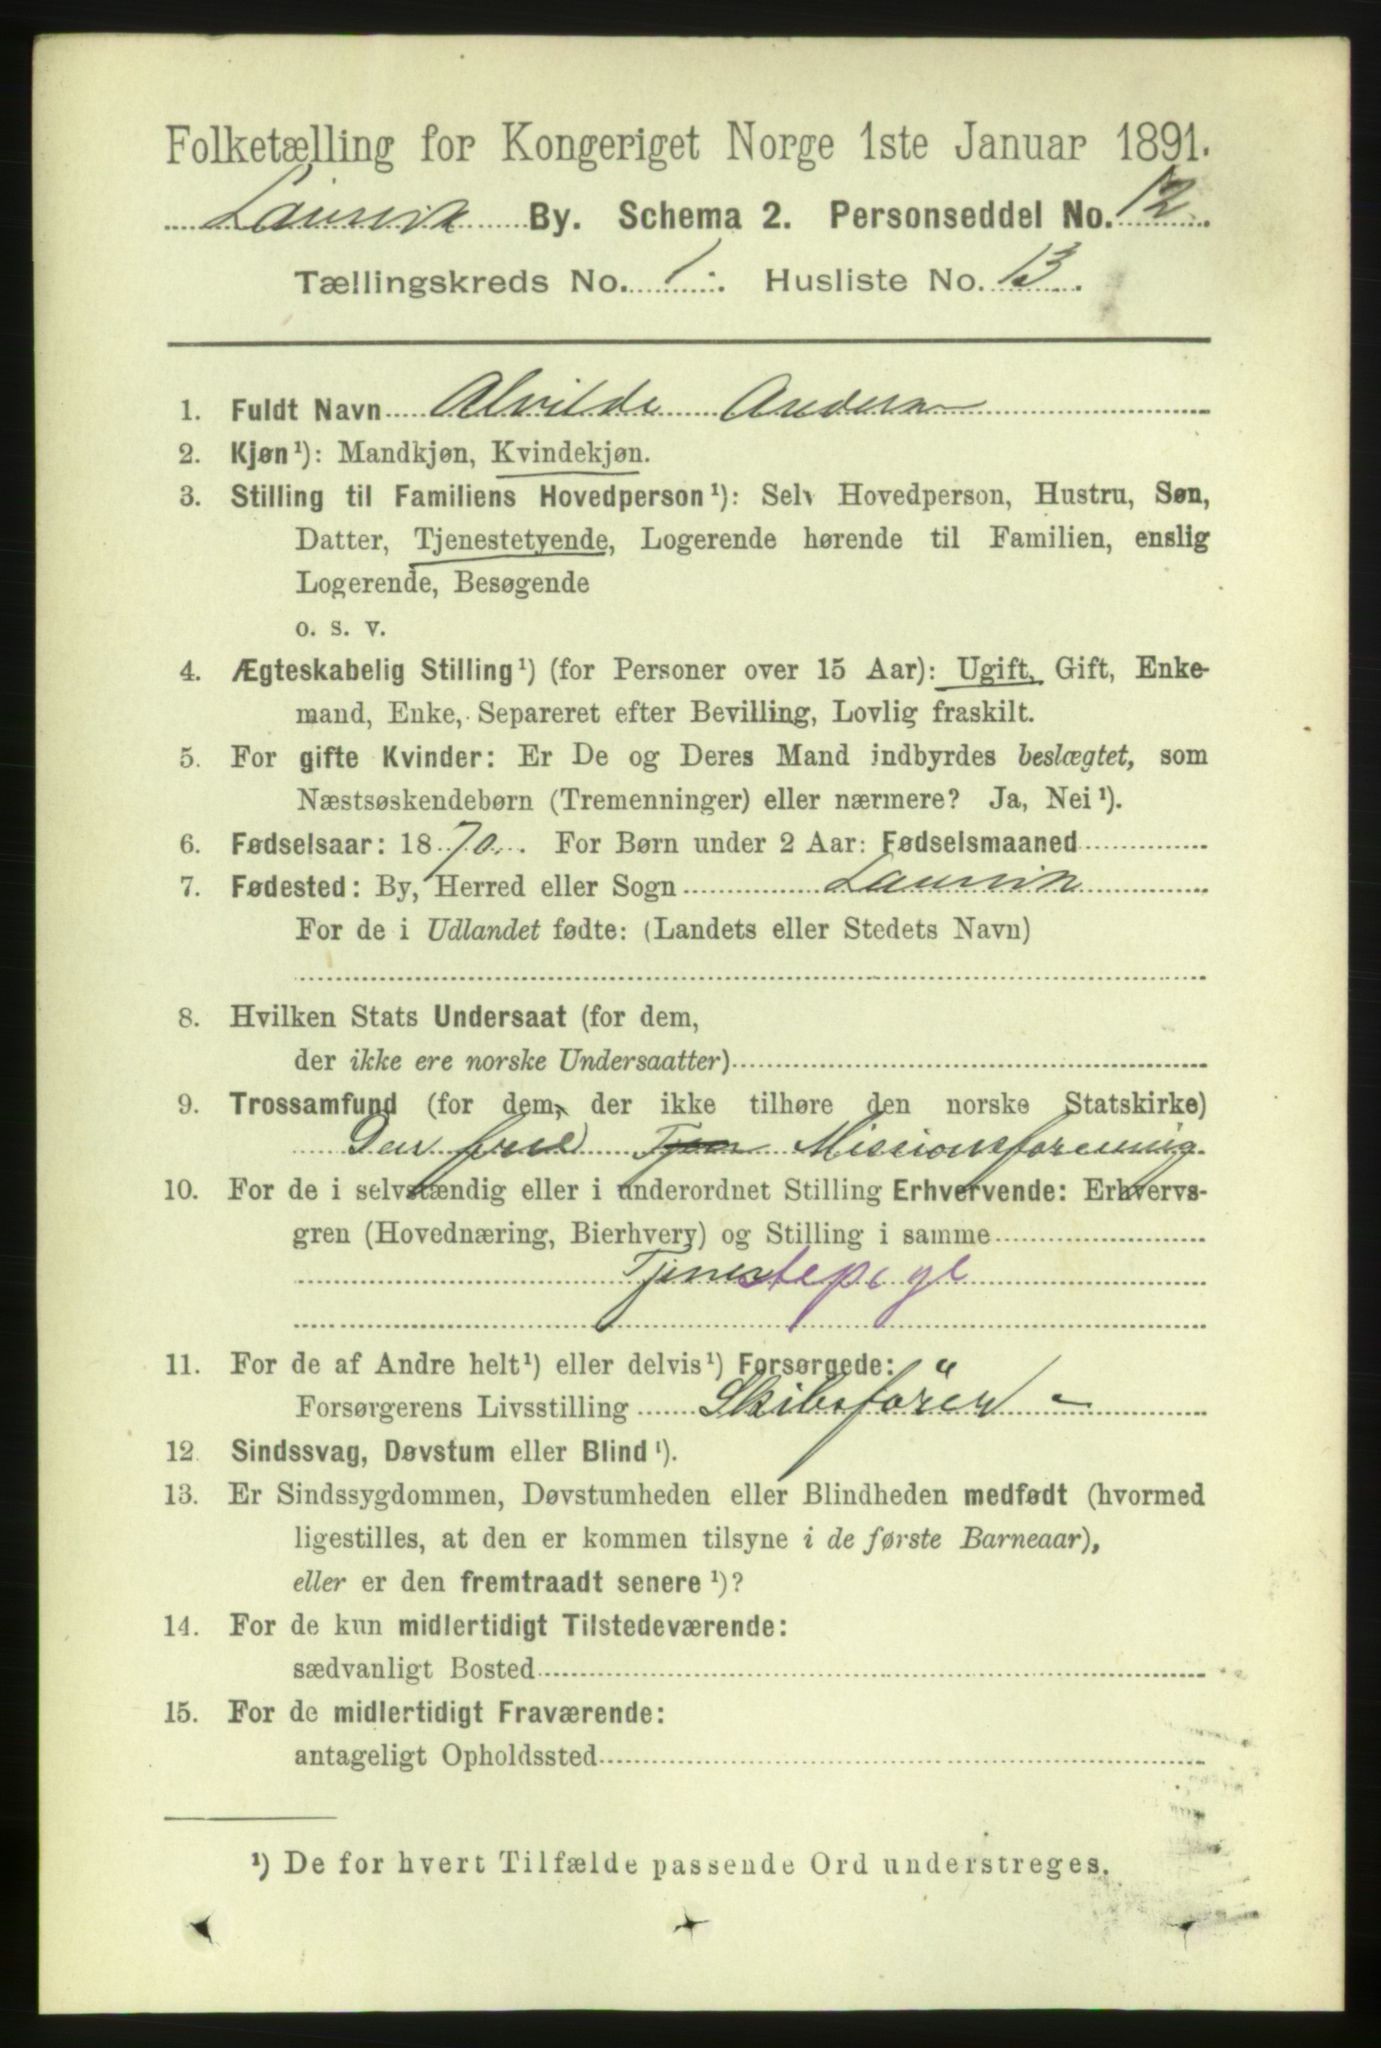 Folketælling for Kongeriget Norge 1ste Januar 1891.
Laurvik By. Schema 2. Personseddel No. 12
Tællingskreds No. 1. Husliste No. 13.
1. Fuldt Navn Alvilde Andersen
2. Kjøn¹): Mandkjøn, Kvindekjøn.
3. Stilling til Familiens Hovedperson¹): Selv Hovedperson, Hustru, Søn,
Datter, Tjenestetyende, Logerende hørende til Familien, enslig
Logerende, Besøgende
o. s. v.
4. Ægteskabelig Stilling¹) (for Personer over 15 Aar): Ugift, Gift, Enke-
mand, Enke, Separeret efter Bevilling, Lovlig fraskilt.
5. For gifte Kvinder: Er De og Deres Mand indbyrdes beslægtet, som
Næstsøskendebørn (Tremenninger) eller nærmere? Ja, Nei¹).
6. Fødselsaar: 1870. For Børn under 2 Aar: Fødselsmaaned
7. Fødested: By, Herred eller Sogn Laurvik
For de i Udlandet fødte: (Landets eller Stedets Navn)
8. Hvilken Stats Undersaat (for dem,
der ikke ere norske Undersaatter)
9. Trossamfund (for dem, der ikke tilhøre den norske Statskirke)
Den frie Missionsforening
10. For de i selvstændig eller i underordnet Stilling Erhvervende: Erhvervs-
gren (Hovednæring, Bierhverv) og Stilling i samme
Tjenestepige
11. For de af Andre helt¹) eller delvis¹) Forsørgede:
Forsørgerens Livsstilling Skibsförer -
12. Sindssvag, Døvstum eller Blind¹).
13. Er Sindssygdommen, Døvstumheden eller Blindheden medfødt (hvormed
ligestilles, at den er kommen tilsyne i de første Barneaar),
eller er den fremtraadt senere¹)?
14. For de kun midlertidigt Tilstedeværende:
sædvanligt Bosted
15. For de midlertidigt Fraværende:
antageligt Opholdssted
¹) De for hvert Tilfælde passende Ord understreges.